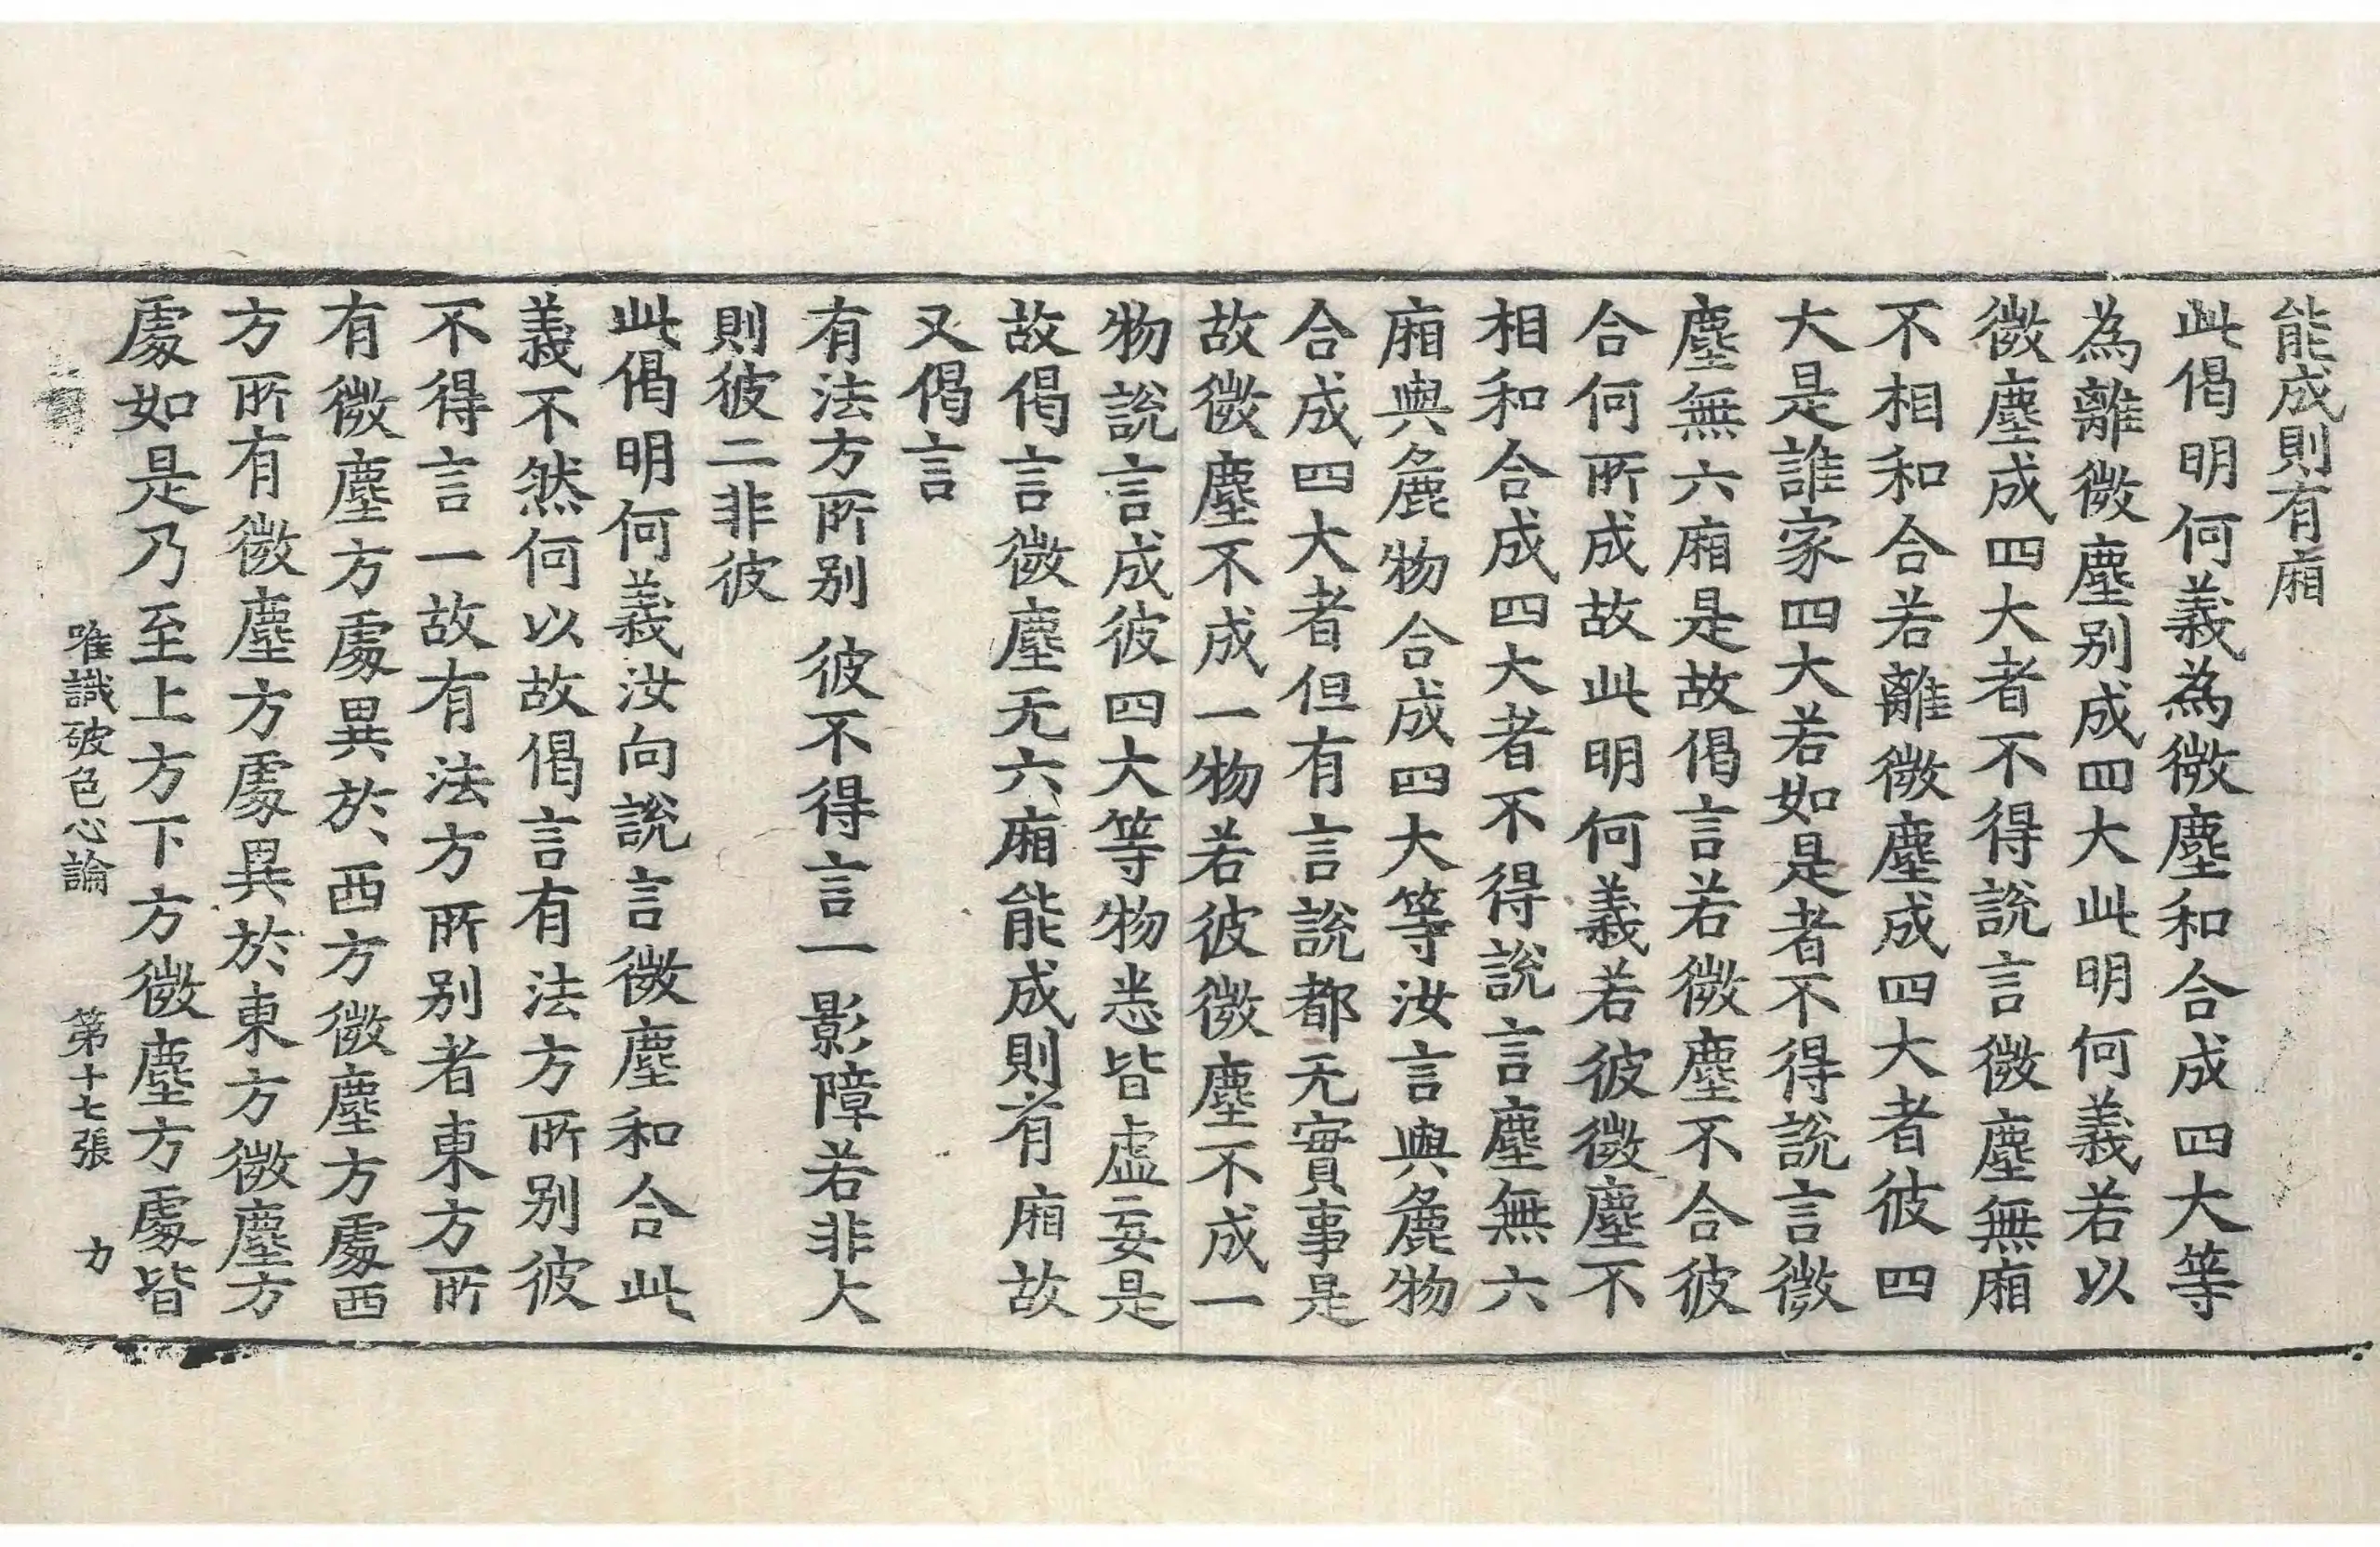 能成則有廂
此偈明何義為微塵和合成四大等
為離微塵別成四大此明何義若以
微塵成四大者不得說言微塵無廂
不相和合若離微塵成四大者彼四
大是誰家四大若如是者不得說言微
塵無六廂是故偈言若微塵不合彼
合何所成故此明何義若彼微塵不
相和合成四大者不得說言塵無六
廂與麁物合成四大等汝言與麁物
合成四大者但有言說都无實事是
故微塵不成一物若彼微塵不成一
物說言成彼四大等物悉皆虛妄是
故偈言微塵无六廂能成則有廂故
又偈言
有法方所別 彼不得言一影障若非大
則彼二非彼
此偈明何義汝向說言微塵和合此
義不然何以故偈言有法方所別彼
不得言一故有法方所別者東方所
有微塵方處異於西方微塵方處西
方所有微塵方處異於東方微塵方
處如是乃至上方下方微塵方處皆
唯識破色心論 第十七張 力